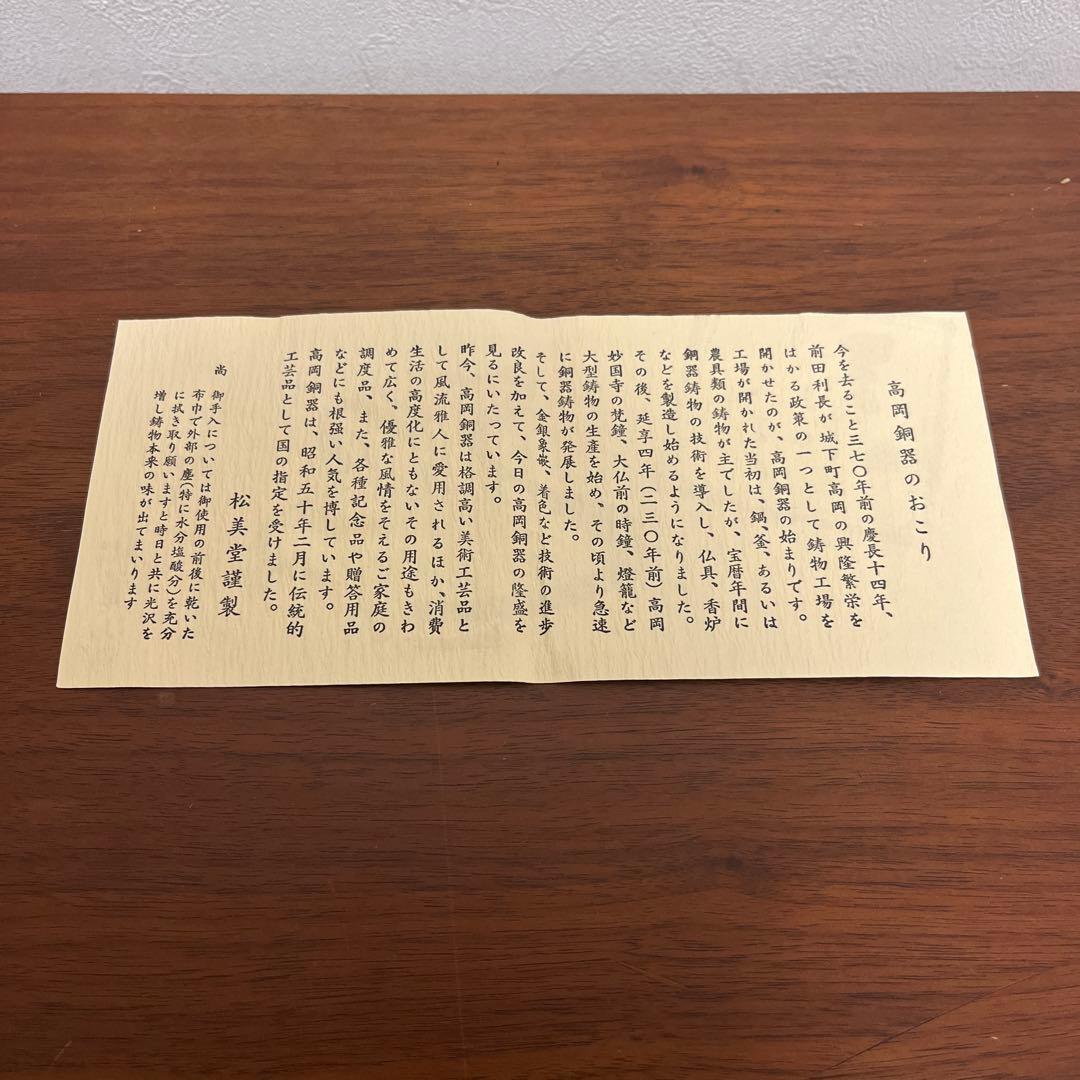 高岡銅器のおこり
今を去ること三七〇年前の慶長十四年、
前田利長が城下町高岡の興隆繁栄を
はかる政策の一つとして鋳物工場を
開かせたのが、高岡銅器の始まりです。
工場が開かれた当初は、鍋、釜、あるいは
農具類の鋳物が主でしたが、宝暦年間に
銅器鋳物の技術を導入し、仏具、香炉
などを製造し始めるようになりました。
その後、延享四年(二三〇年前)高岡
妙国寺の梵鐘、大仏前の時鐘、燈籠など
大型鋳物の生産を始め、その頃より急速
に銅器鋳物が発展しました。
そして、金銀象嵌、着色など技術の進歩
改良を加えて、今日の高岡銅器の隆盛を
見るにいたっています。
昨今、高岡銅器は格調高い美術工芸品と
して風流雅人に愛用されるほか、消費
生活の高度化にともないその用途もきわ
めて広く、優雅な風情をそえるご家庭の
調度品、また、各種記念品や贈答用品
などにも根強い人気を博しています。
高岡銅器は、昭和五十年二月に伝統的
工芸品として国の指定を受けました。
松美堂謹製
尚 御手入については御使用の前後に乾いた
布巾で外部の塵(特に水分塩酸分)を充分
に拭き取り願いますと時日と共に光沢を
増し鋳物本来の味が出てまいります